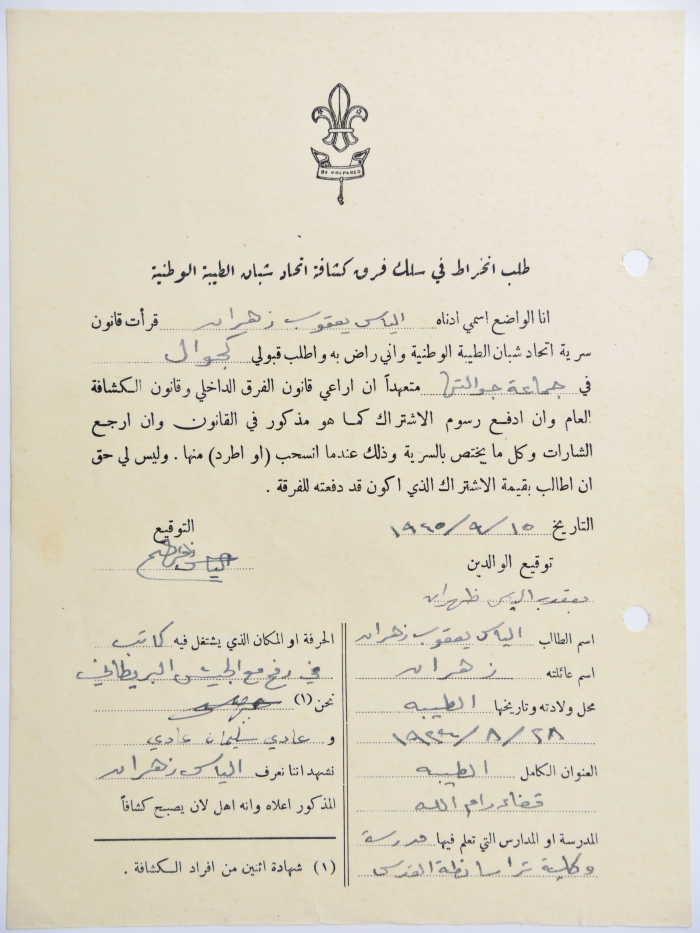 BE PREPARED
طلب انخراط في سلك فرق كشافة اتحاد شبان الطيبة الوطنية
انا الواضع اسمي ادناه الياس يعقوب زهران قرأت قانون
سرية اتحاد شبان الطيبة الوطنية واني راض به واطلب قبولي كجوال
في جماعة جوالتها متعهداً ان اراعي قانون الفرق الداخلي وقانون الكشافة
العام وان ادفع رسوم الاشتراك كما هو مذكور في القانون وان ارجع
الشارات وكل ما يختص بالسرية وذلك عندما انسحب (او اطرد) منها . وليس لي حق
ان اطالب بقيمة الاشتراك الذي اكون قد دفعته للفرقة .
التاريخ ١٥/٩/١٩٤٥
التوقيع
الياس زهران
توقيع الوالدين
يعقوب الياس ظهران
اسم الطالب الياس يعقوب زهران
اسم عائلته زهران
محل ولادته وتاريخها الطيبه
٢٨/٨/١٩٢٤
العنوان الكامل الطيبه
قضاء رام الله
المدرسة او المدارس التي تعلم فيها مدرسة
وكلية تراسانطة القدس
الحرفة او المكان الذي يشتغل فيه كاتب
في رفح مع الجيش البريطاني
نحن (١)
و عادي سليمان عادي
نشهد اننا نعرف الياس زهران
المذكور اعلاه وانه اهل لان يصبح كشافاً
(١) شهادة اثنين من افراد الكشافة .